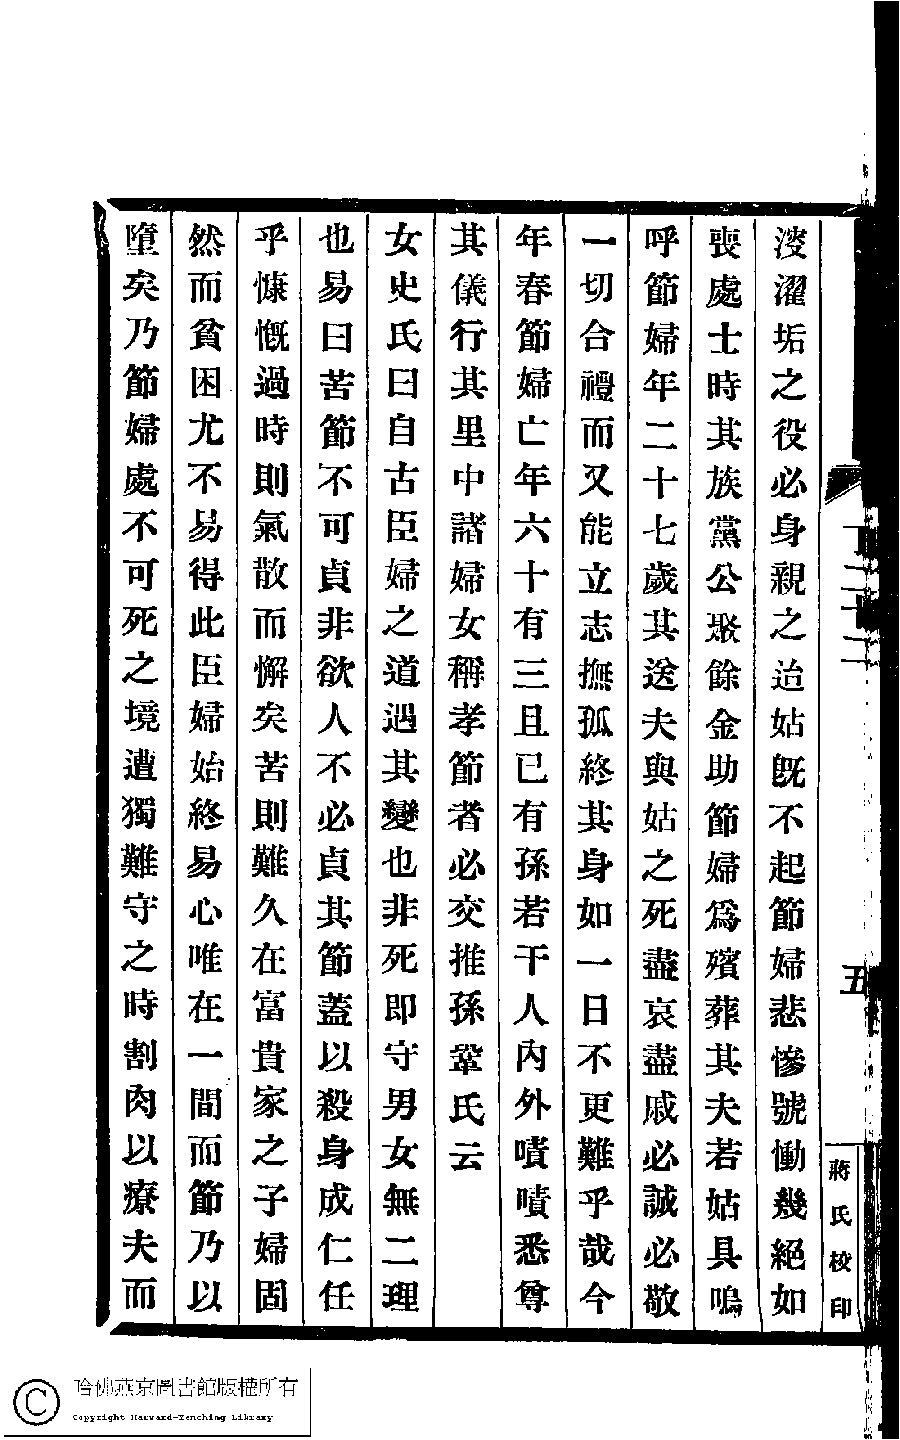 溲濯垢之役必身親之迨姑旣不起節婦悲慘號慟幾絕如
喪處士時其族黨公聚餘金助節婦爲殯葬其夫若姑具嗚
呼節婦年二十七歲其送夫與姑之死盡哀盡戚必誠必敬
一切合禮而又能立志撫孤終其身如一日不更難乎哉今
年春節婦亡年六十有三且已有孫若干人內外嘖嘖悉尊
其儀行其里中諸婦女稱孝節者必交推孫鞏氏云
女史氏曰自古臣婦之道遇其變也非死即守男女無二理
也易曰苦節不可貞非欲人不必貞其節蓋以殺身成仁任
乎慷慨過時則氣散而懈矣苦則難久在富貴家之子婦固
然而貧困尤不易得此臣婦始終易心唯在一間而節乃以
墮矣乃節婦處不可死之境遭獨難守之時割肉以療夫而
五
蔣氏校印
哈佛燕京圖書館版權所有
Copyright Harvard-Yenching Library